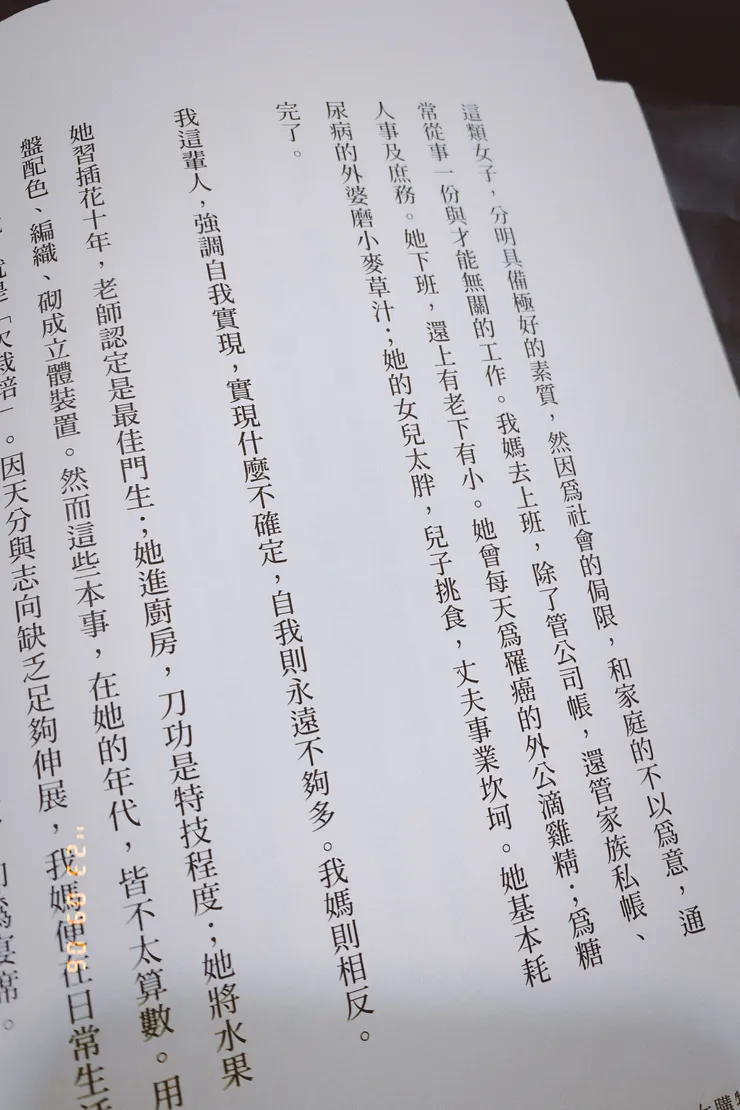 這類女子，分明具備極好的素質，然因爲社會的侷限，和家庭的不以爲意，通
常從事一份與才能無關的工作。我媽去上班，除了管公司帳，還管家族私帳、
人事及庶務。她下班，還上有老下有小。她曾每天爲罹癌的外公滴雞精；爲糖
尿病的外婆磨小麥草汁；她的女兒太胖，兒子挑食，丈夫事業坎坷。她基本耗
完了。
我這輩人，強調自我實現，實現什麼不確定，自我則永遠不夠多。我媽則相反。
她習插花十年，老師認定是最佳門生；她進廚房，刀功是特技程度；她將水果
盤配色、編織、砌成立體裝置。然而這些本事，在她的年代，皆不太算數。用
就是「欠栽培」。因天分與志向缺乏足夠伸展，我媽便在日常生活
爲宴席。
購物
"23 09 06